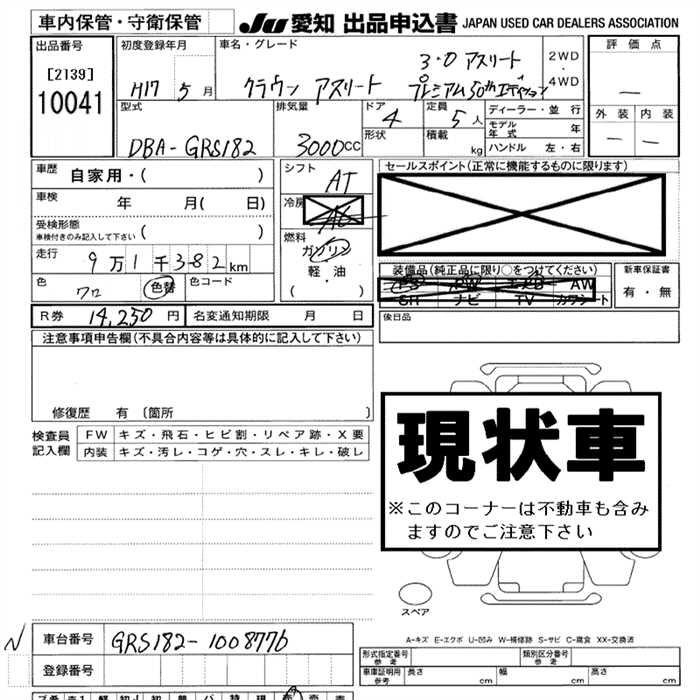 車内保管・守衛保管 JU 愛知 出品申込書 JAPAN USED CAR DEALERS ASSOCIATION
出品番号 初度登録年月 車名・グレード 評価点
[2139] H17 5月 クラウン アスリート 3.0 アスリート 2WD・4WD
10041 プレミアム50thエディション
型式 排気量 ドア 定員 ディーラー・並行 外装 内装
DBA-GRS182 3000cc 4 5人 モデル年式 年
形状 積載 kg ハンドル 左・右
車歴 自家用・( ) シフト AT セールスポイント(正常に機能するものに限ります)
車検 年 月( 日) 冷房 AC
受検形態 ( )
車検付きのみ記入して下さい
走行 9万1千382km 燃料 ガソリン 軽・油 ( ・ )
装備品(純正品に限り○をつけてください) 新車保証書
PS PW エアB AW 有・無
SR ナビ TV カワシート
色 クロ 色替 色コード
R券 14,250円 名変通知期限 月 日 後日品
注意事項申告欄(不具合内容等は具体的に記入して下さい)
修復歴 有 〔箇所 〕
検査員記入欄 FW キズ・飛石・ヒビ割・リペア跡・X要
内装 キズ・汚レ・コゲ・穴・スレ・キレ・破レ
現状車
※このコーナーは不動車も含み
ますのでご注意下さい
スペア
A-キズ E-エクボ U-凹み W-補修跡 S-サビ C-腐食 XX-交換済
車台番号 GRS182-1008776
登録番号
型式指定番号 参考 類別区分番号 参考
車庫証明用 参考 長さ cm 幅 cm 高さ cm